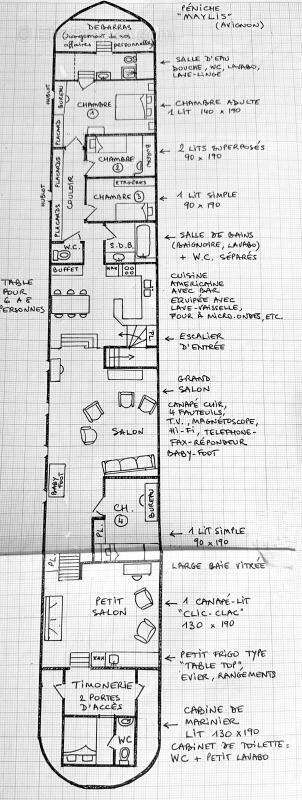 PÉNICHE
"MAYLIS"
(AVIGNON)
DEBARRAS
(rangement de nos
affaires personnelles)
SALLE D'EAU
DOUCHE, WC, LAVABO,
LAVE-LINGE
HUBLOT
BUREAU
CHAMBRE
1
CHAMBRE ADULTE
1 LIT 140 x 190
PLACARDS
PLACARDS
PLACARDS
COULOIR
HUBLOT
CHAMBRE 2
BUREAU
2 LITS SUPERPOSÉS
90 x 190
ETAGÈRES
CHAMBRE 3
1 LIT SIMPLE
90 x 190
W.C.
S.D.B.
SALLE DE BAINS
(BAIGNOIRE, LAVABO)
+ W.C. SÉPARÉS
BUFFET
TABLE
POUR
6 A 8
PERSONNES
CUISINE
AMERICAINE
AVEC BAR
EQUIPÉE AVEC
LAVE-VAISSELLE,
FOUR À MICRO.ONDES, ETC.
PL.
ESCALIER
D'ENTRÉE
GRAND
SALON
SALON
CANAPÉ CUIR,
4 FAUTEUILS,
T.V., MAGNÉTOSCOPE,
HI-FI, TELEPHONE-
FAX-RÉPONDEUR
BABY-FOOT
BABY
FOOT
CH.
4
BUREAU
PL.
1 LIT SIMPLE
90 x 190
PL.
LARGE BAIE VITRÉE
PETIT
SALON
1 CANAPÉ-LIT
"CLIC-CLAC"
130 x 190
PETIT FRIGO TYPE
"TABLE TOP",
EVIER, RANGEMENTS
TIMONERIE
2 PORTES
D'ACCÈS
CABINE DE
MARINIER
LIT 130 x 190
CABINET DE TOILETTE:
WC + PETIT LAVABO
WC